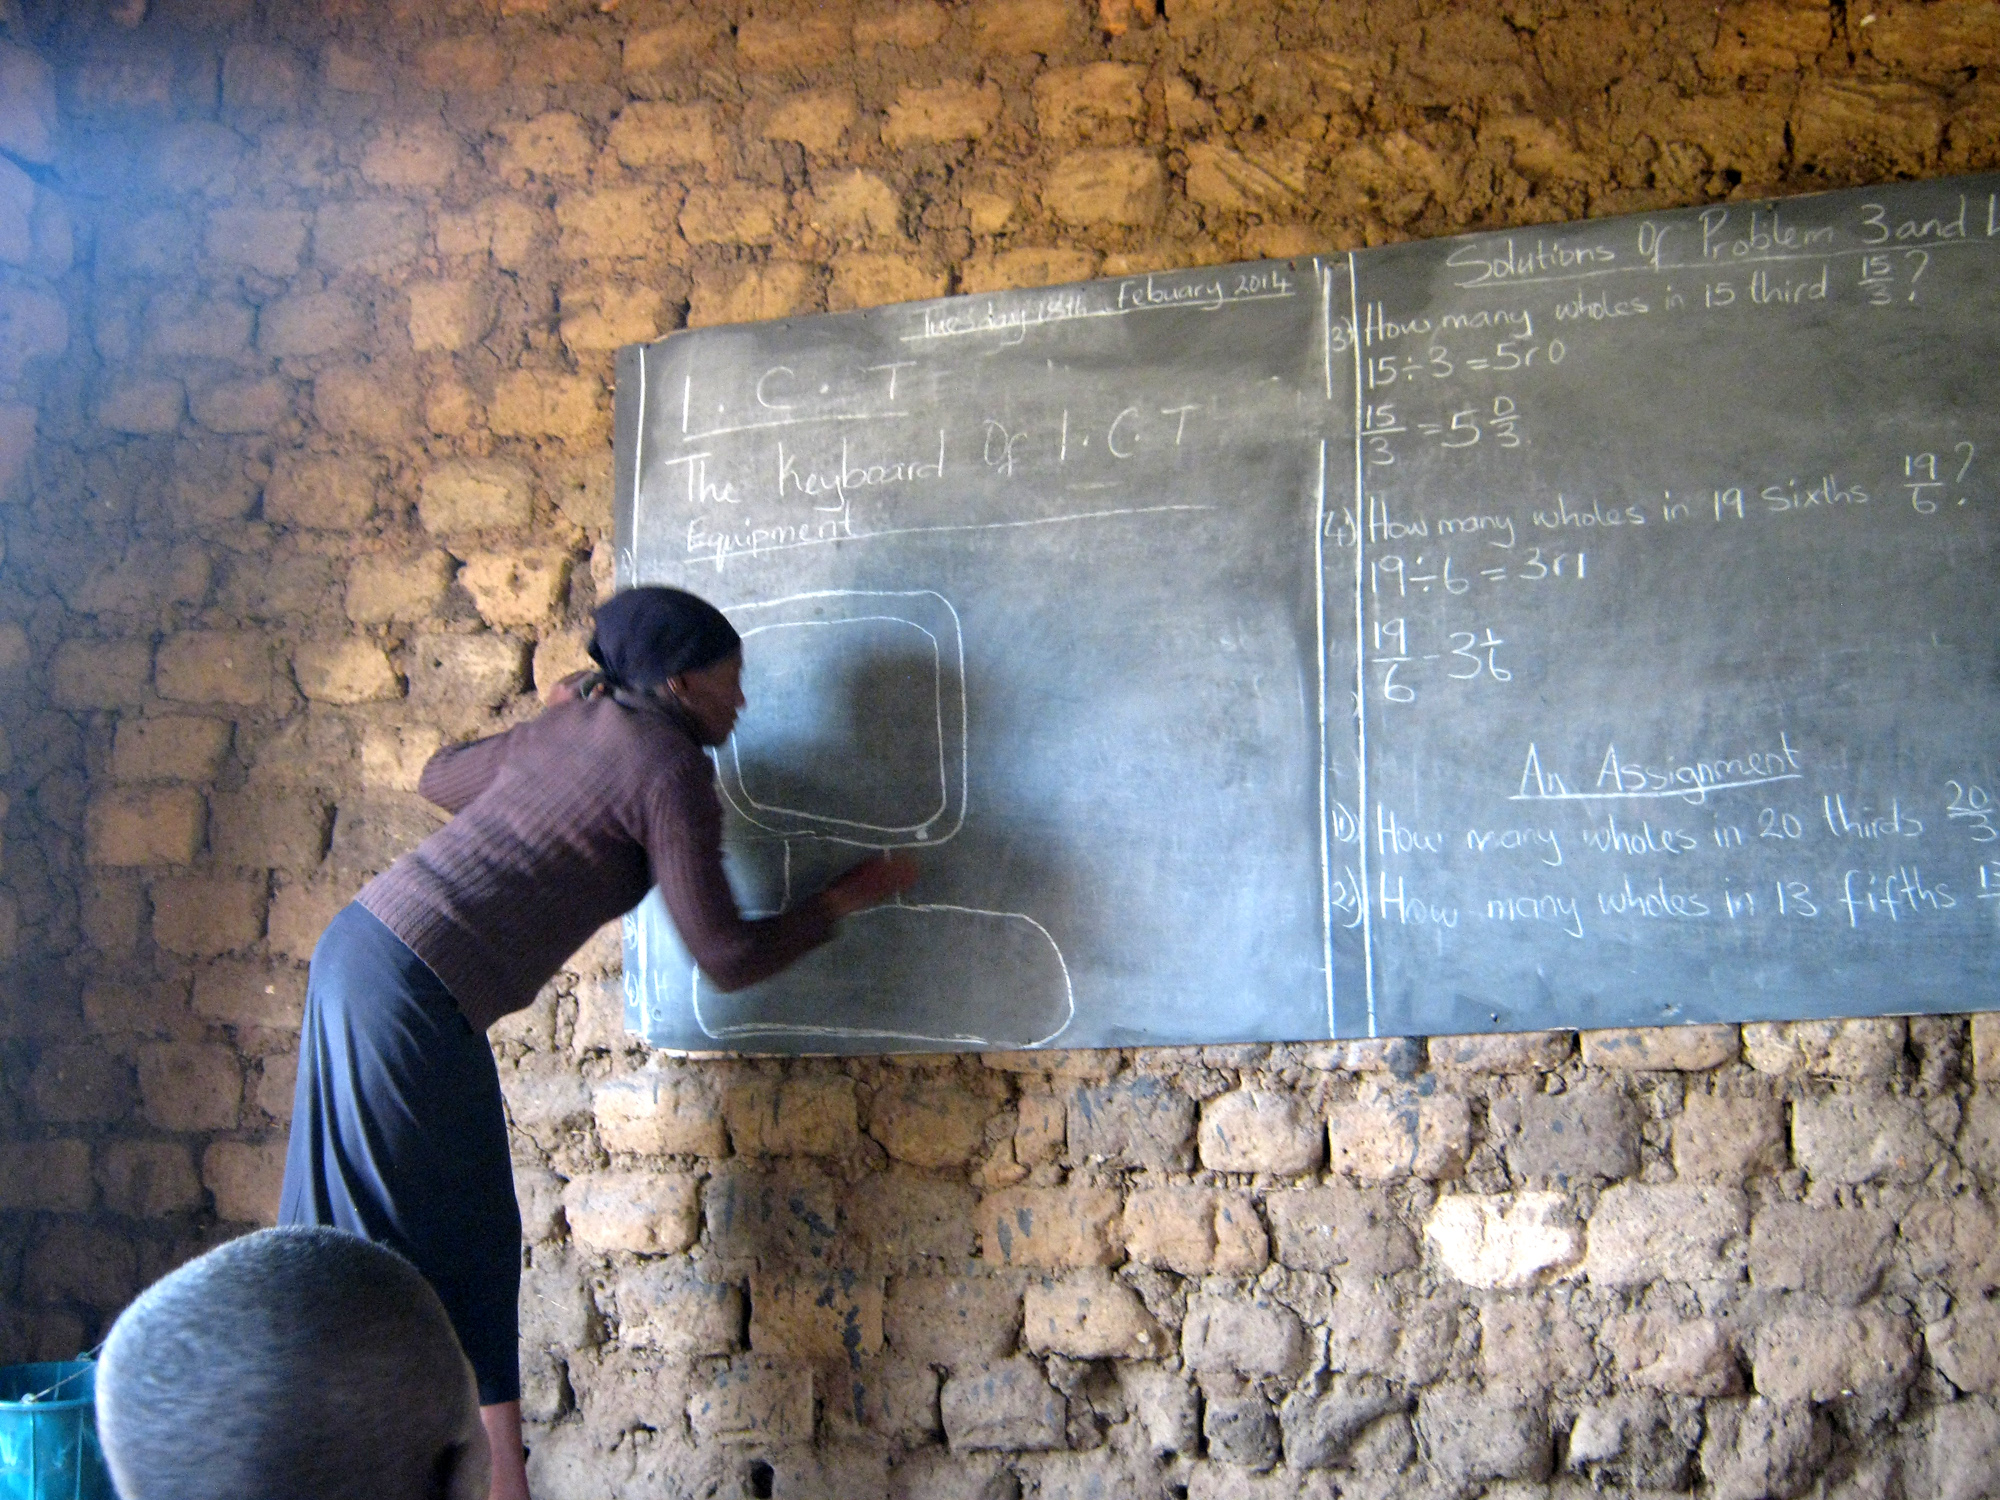 Tuesday 18th Febuary 2014
I.C.T
The Keyboard Of I.C.T
Equipment
Solutions Of Problem 3 and
3) How many wholes in 15 third 15/3?
15÷3 = 5r0
15/3 = 5 0/3
4) How many wholes in 19 sixths 19/6?
19÷6 = 3r1
19/6 - 3 1/6
An Assignment
1) How many wholes in 20 thirds 20/3
2) How many wholes in 13 fifths 13